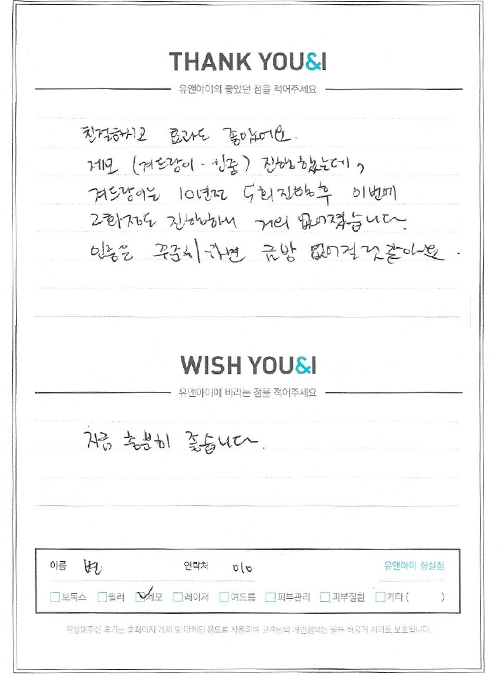 THANK YOU&I
유앤아이의 좋았던 점을 적어주세요
친절하시고 효과도 좋았어요.
제모 (겨드랑이·인중) 진행했는데,
겨드랑이는 10년전 5회 진행후 이번에
2회정도 진행하니 거의 없어졌습니다.
인중은 꾸준히 하면 금방 없어질것같아요.
WISH YOU&I
유앤아이에 바라는 점을 적어주세요
지금 충분히 좋습니다.
이름 변 연락처 010 유앤아이 잠실점
보톡스 필러 제모 레이저 여드름 피부관리 피부질환 기타 ( )
작성해주신 후기는 홈페이지 게재 및 마케팅 용도로 사용되며 고객님의 개인정보는 일부 비공개 처리로 보호됩니다.